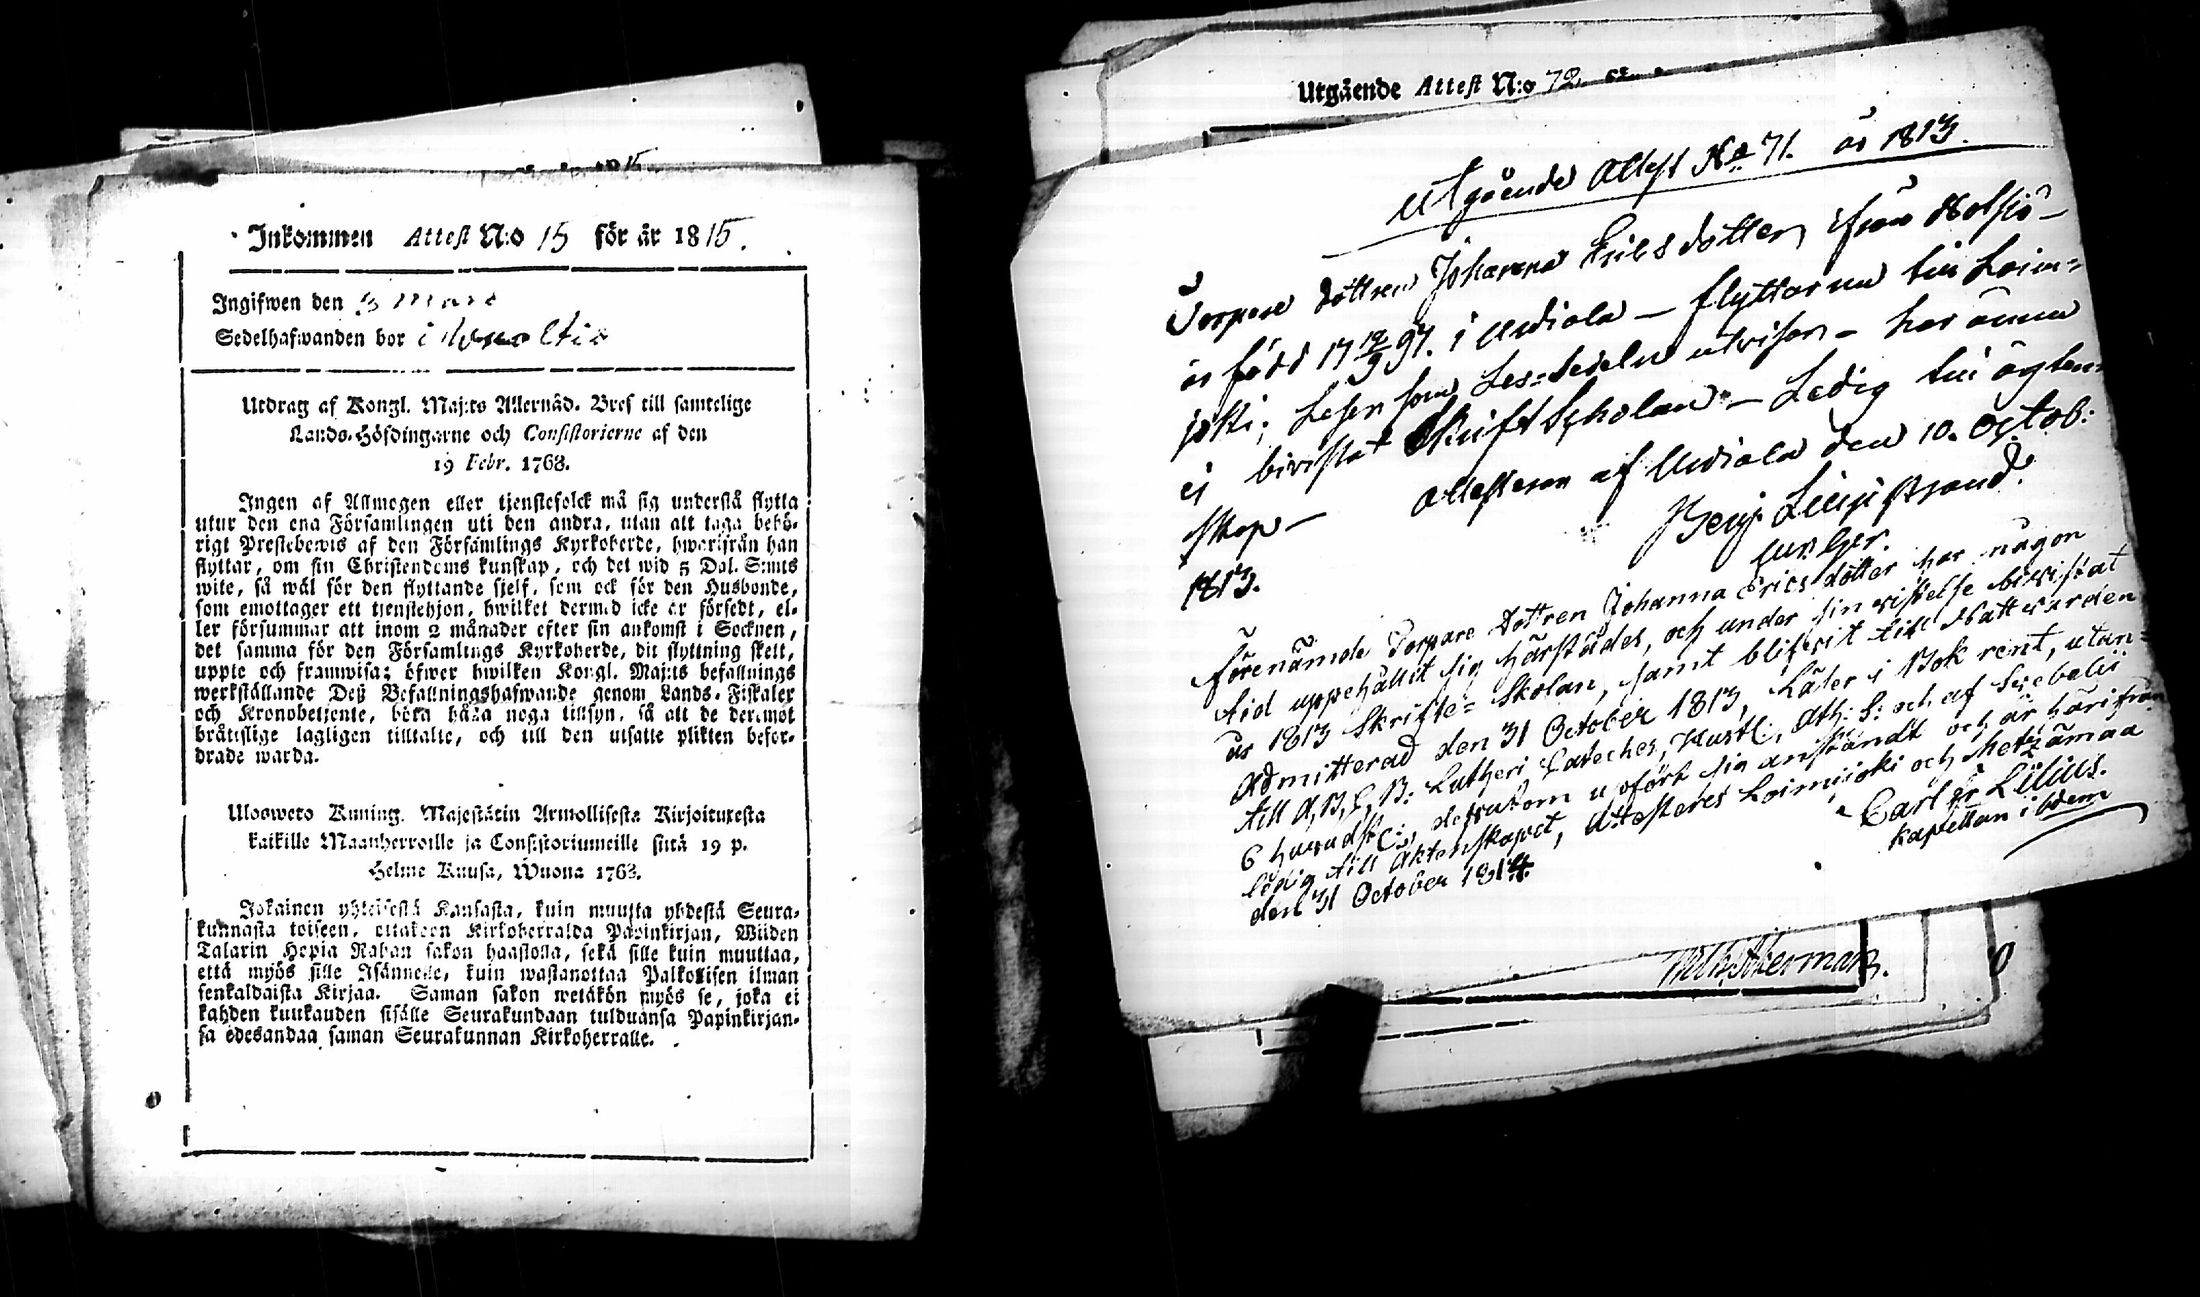 Inkommen Attest N:o 15 för år 1815.
Ingifwen den 3 Mars
Sedelhafwanden bor i
Utdrag af Kongl. Maj:ts Allernåd. Bref till samtelige
Lands-Höfdingarne och Consistorierne af den
19 Febr. 1763.
Ingen af Allmogen eller tjenstefolck må sig understå flytta
utur den ena Församlingen uti den andra, utan att taga behö-
rigt Prestebewis af den Församlings Kyrkoherde, hwarifrån han
flyttar, om sin Christendoms kunskap, och det wid 5 Dal. S:mts
wite, så wäl för den flyttande sjelf, som ock för den Husbonde,
som emottager ett tjenstehjon, hwilket dermed icke är försedt, el-
ler försummar att inom 2 månader efter sin ankomst i Socknen,
det samma för den Församlings Kyrkoherde, dit flyttning skett,
uppte och framwisa; öfwer hwilken Kongl. Maj:ts befallnings
werkställande Deß Befallningshafwande genom Lands-Fiskaler
och Kronobetjente, böra hålla noga tillsyn, så att de deremot
bråttslige lagligen tilltalte, och till den utsatte plikten befor-
drade warda.
Ulosweto Kuning. Majestätin Armollisesta Kirjoituxesta
kaikille Maanherroille ja Consistoriumeille siitä 19 p.
Helme Kuusa, Wuona 1763.
Jokainen yhteisestä Kansasta, kuin muutta yhdestä Seura-
kunnasta toiseen, ottakoon Kirkoherralda Papinkirjan, Wiiden
Talarin Hopia Rahan sakon haastolla, sekä sille kuin muuttaa,
että myös sille Isännelle, kuin wastanottaa Palkolisen ilman
senkaldaista Kirjaa. Saman sakon wetäkön myös se, joka ei
kahden kuukauden sisälle Seurakundaan tulduansa Papinkirjan-
sa edesandaa saman Seurakunnan Kirkoherralle.
Utgående Attest N:o 72
Utgående Attest No 71. år 1813.
Torpare dottren Johanna Ericsdotter, ifrån
är född 17 12/9 97. i Urdiala – flyttar nu till Loim-
joki; Läser som Läs-Sedeln utvisar – har ännu
ej bivistat Skrift Scholan – Ledig till ägten-
skap – Attesteras af Urdiala den 10. Octob:
1813.
Förenämde Torpare Dottren Johanna Ericsdotter har någon
tid uppehållit sig härstädes, och under sin vistelse bivistat
år 1813 Skrifte-Skolan, samt blifvit till Nattvarden
Admitterad den 31 October 1813, Läser i Bok rent, utan-
till A, B, C, B: Lutheri Cateches, Hustl, Ath: S: och af Svebelii
6 hufvudst:; dessutom upfört sig anständt och är härifrån
ledig till Äktenskapet, Attesteres Loimijoki och Metzämaa
den 31 October 1814.
Carl Lilius.
Kapellan ibidem